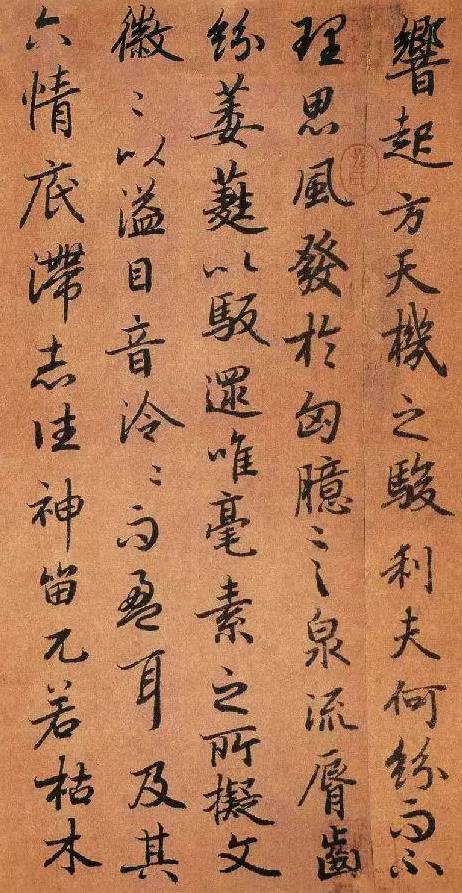 響起方天機之駿利夫何紛而不
理思風發於匈臆言泉流脣齒
紛萎蕤以馺遝唯毫素之所擬文
徽〻以溢目音泠〻而盈耳及其
六情底滯志往神留兀若枯木